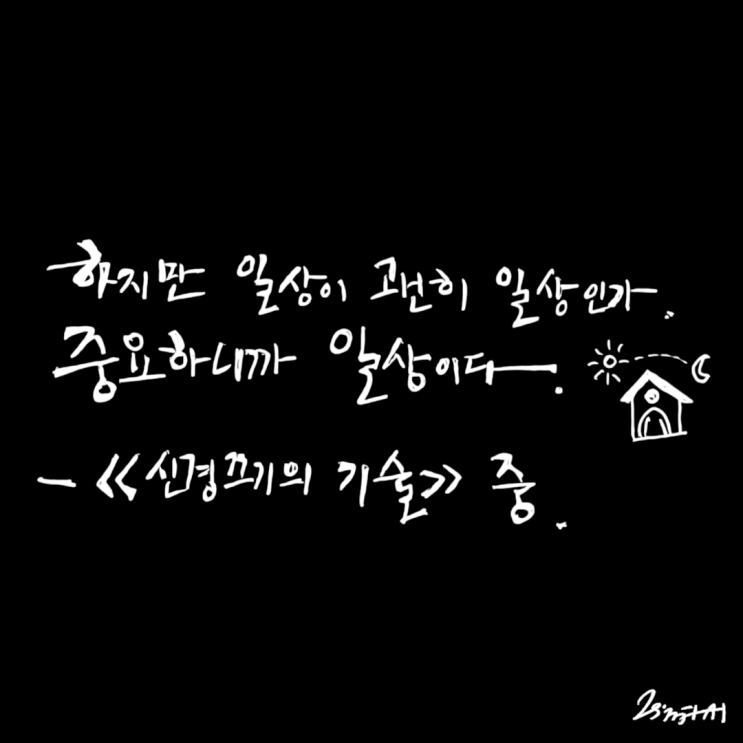 하지만 일상이 괜히 일상인가.
중요하니까 일상이다.
- 《신경끄기의 기술》 중.